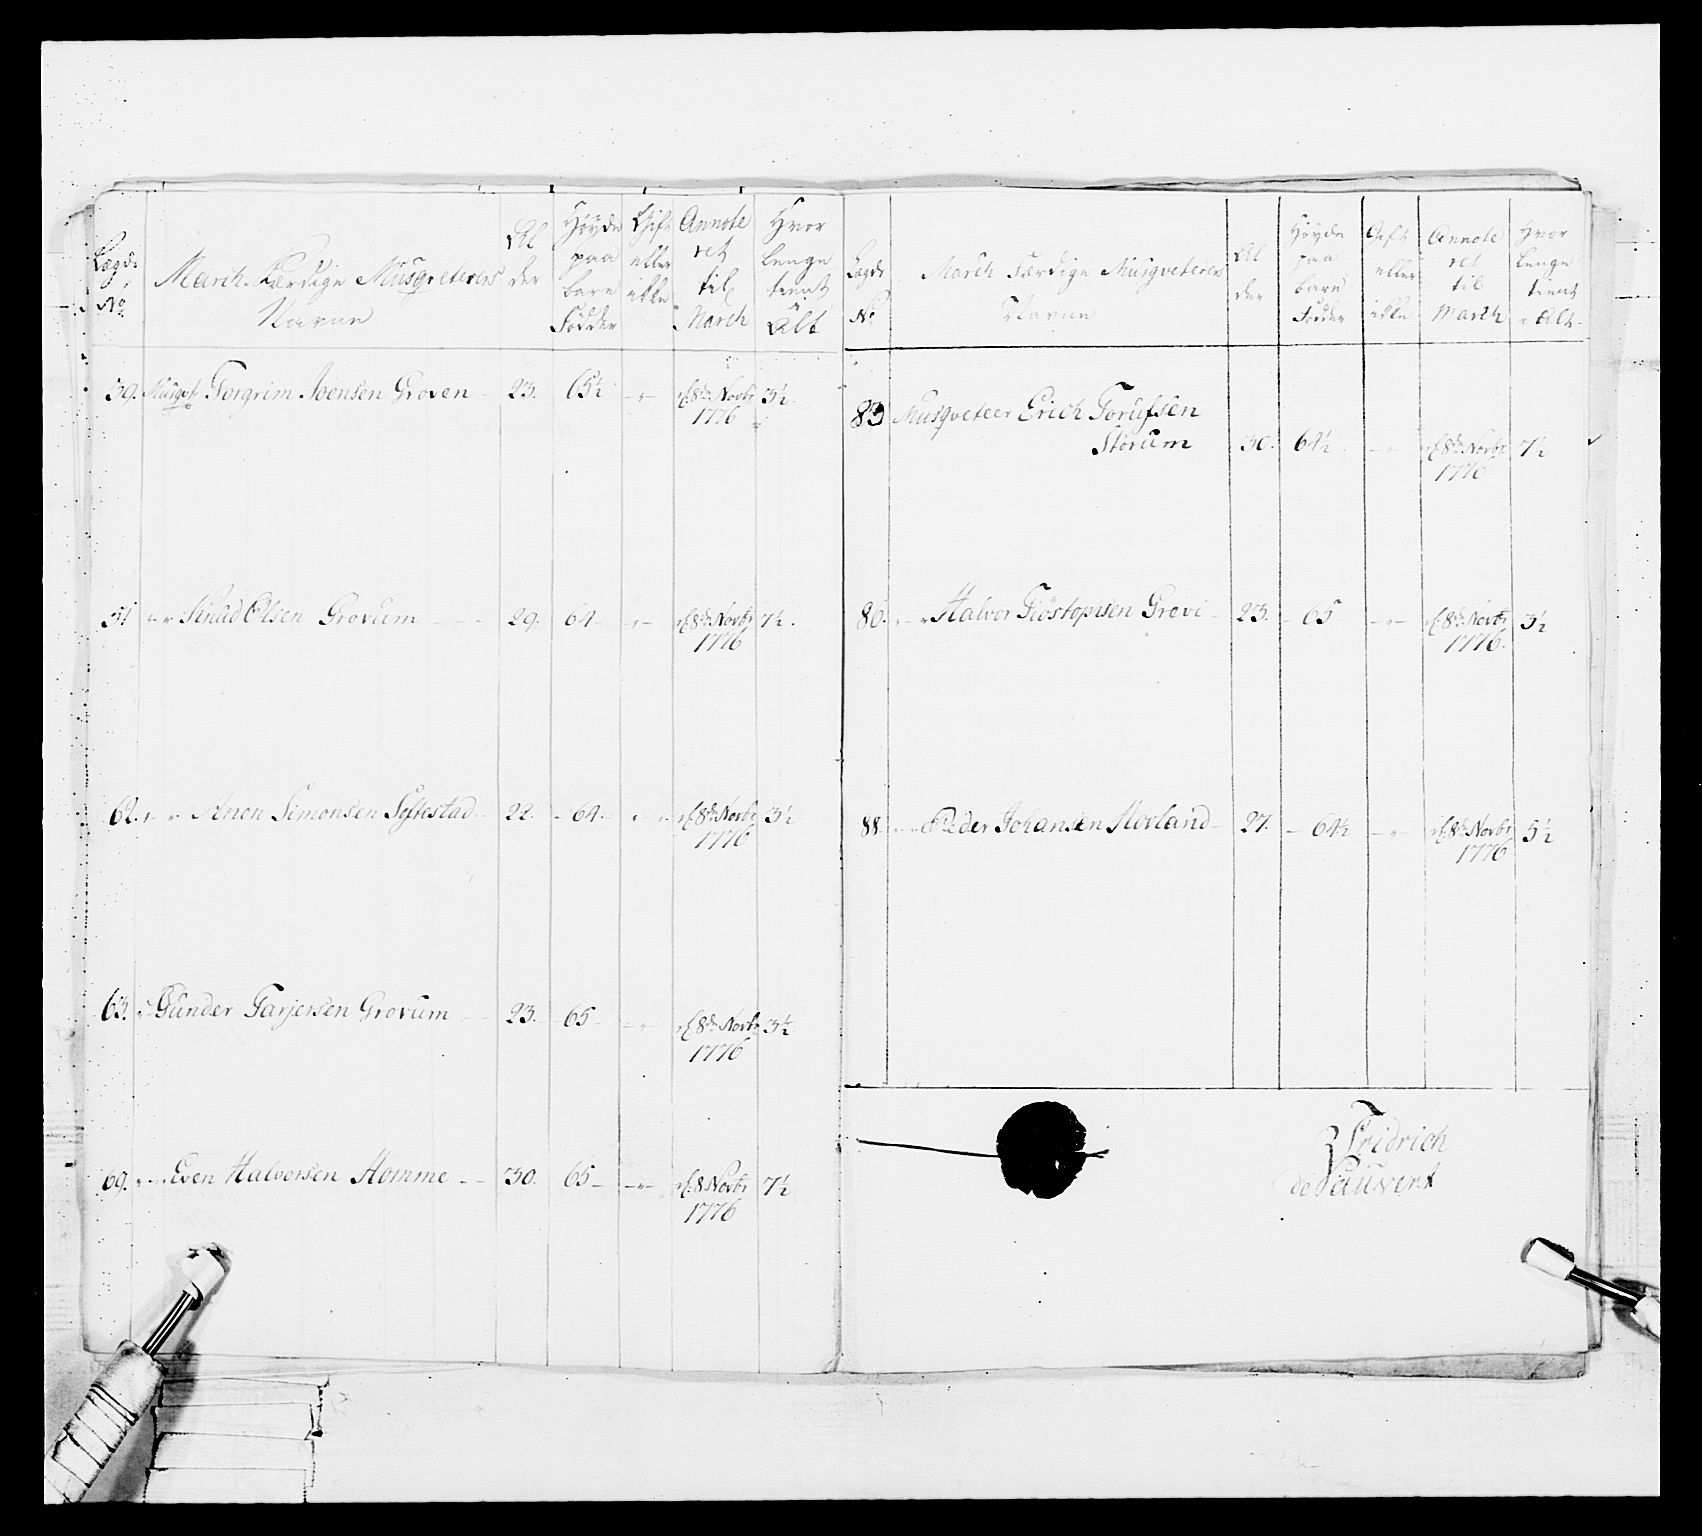 Lægds No
March Færdige Musqveterers Navne
Alder
Høyde paa bare Fødder
Gift eller ikke
Annoteret til March
Hvor lenge tient i Alt
39. Musqvr Torgrim Joensen Groven 23. 65½ - " - d. 8de Novbr 1776 3½.
51 " " Knud Olsen Grovum - - - 29. 64 - " - d. 8de Novbr 1776 7½.
62. " " Anon Simonsen Softestad 22. - 64. " " d. 8de Novbr 1776 3½
63. " Gunder Tarjersen Grovum - - 23. 65 - " - d. 8de Novbr 1776 3½
69. " - " Even Halvorsen Homme - - 30. 65 - - " - d. 8 Novbr 1776 7½
Lægds No
March Færdige Musqveterers Navne
Alder
Høyde paa bare Fødder
Gift eller ikke
Annoteret til March
Hvor lenge tient i Alt
83 Musqveteer Erich Torufsen
Storum 30. 64½ - " - d. 8de Novbr 1776 7½
86. " - " Halvor Tiöstofsen Grevi - 23. - 65 - " - d. 8de Novbr 1776. 3½
88 - - " Peder Johansen Hovland - 27. - 64½ - " - d. 8de Novbr 1776 5½
Fridrich
de